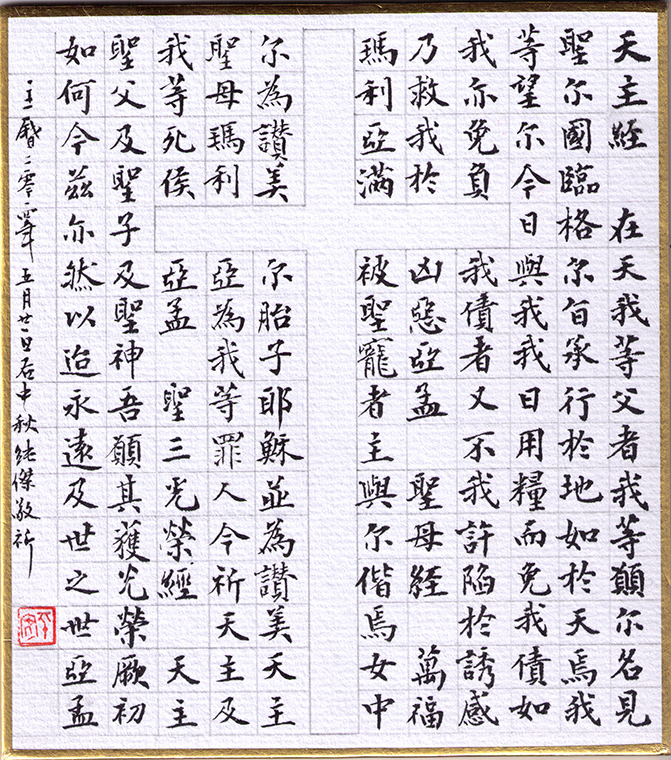 天主經 在天我等父者我等願尓名見
聖尓國臨格尓旨承行於地如於天焉我
等望尓今日與我我日用糧而免我債如
我亦免負我債者又不我許陷於誘感
乃救我於凶惡亞孟 聖母經 萬福
瑪利亞滿被聖寵者主與尓偕焉女中
尓為讃美尓胎子耶穌並為讃美天主
聖母瑪利亞為我等罪人今祈天主及
我等死侯亞孟 聖三光榮經 天主
聖父及聖子及聖神吾願其獲光榮厥初
如何今兹亦然以迨永遠及世之世亞孟
主曆二零一四年 五月廿一日 中秋 傑敬祈